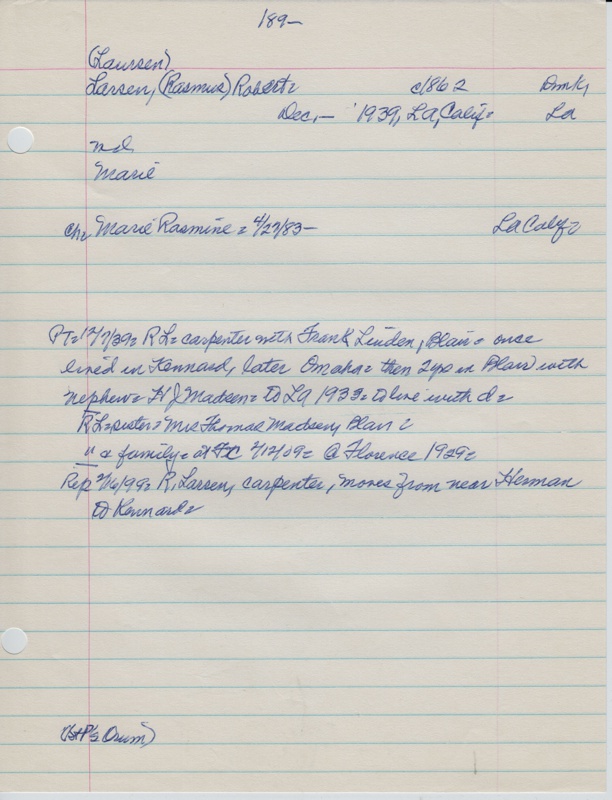 189-
(Laursen)
Larsen, (Rasmus) Robert= c1862 Dmk,
Dec,- '1939, LA, Calif= La
md.
Marie
ch= Marie Rasmine= 4/27/83- La Calif=
PT=12/7/39= RL= carpenter with Frank Linden, Blair= once
lived in Kennard, later Omaha= then 2yrs in Blair with
nephew= H J Madsen= to LA 1933= to live with d=
RL=sister= Mrs Thomas Madsen, Blair=
" & family= at 2/12/09= @ Florence 1929=
Rep= R, Larsen, carpenter, moves from near Herman
to Kennard=
Orum)